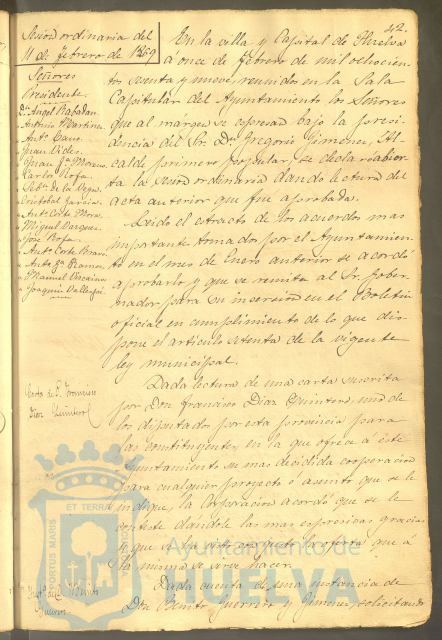 42.
Sesion ordinaria del
11 de Febrero de 1869
Señores
Presidente.
Dn Angel Rabadan
Antonio Martinez
Anto Cano
Juan Vides
Juan Ga Moreno
Carlos Rofa
Sebn de la Vega
Cristobal Garcia
Anto Corte Mora
Miguel Vazquez
Jose Rofa
Anto Corte Bravo
Anto Ga Ramos
Manuel Vizcaino
Joaquin
En la villa y Capital de Huelva
á once de Febrero de mil ochocien-
tos sesenta y nueve, reunidos en la Sala
Capitular del Ayuntamiento los Señores
que al margen se espresan bajo la presi-
dencia del Sr. Dn Gregorio Jimenez, Al-
calde primero popular, se declaró abier-
ta la sesion ordinaria dando lectura del
acta anterior que fue aprobada.
Leido el estracto de los acuerdos mas
importantes tomados por el Ayuntamien-
to en el mes de Enero anterior se acordó
aprobarlo y que se remita al Sr. Gober-
nador para su insercion en el Boletin
oficial en cumplimiento de lo que dis-
pone el articulo setenta de la vigente
ley municipal.
Carta de D. Francisco
Diaz Quintero
Dada lectura de una carta suscrita
por Don Francisco Diaz Quintero, uno de
los diputados por esta provincia para
las constituyentes, en la que ofrece á este
Ayuntamiento su mas decidida cooperacion
para cualquier proyecto ó asunto que se le
indique, la Corporacion acordó que se le
conteste dandole las mas espresivas gracias
y que se ha visto con gusto la oferta que á
la misma se sirve hacer.
de D. Benito
Guerrero
Dada cuenta de una instancia de
Don Benito Guerrero y Gimenez solicitando
PORTUS MARIS ET TERRAE CUSTODIA
Ayuntamiento de
HUELVA